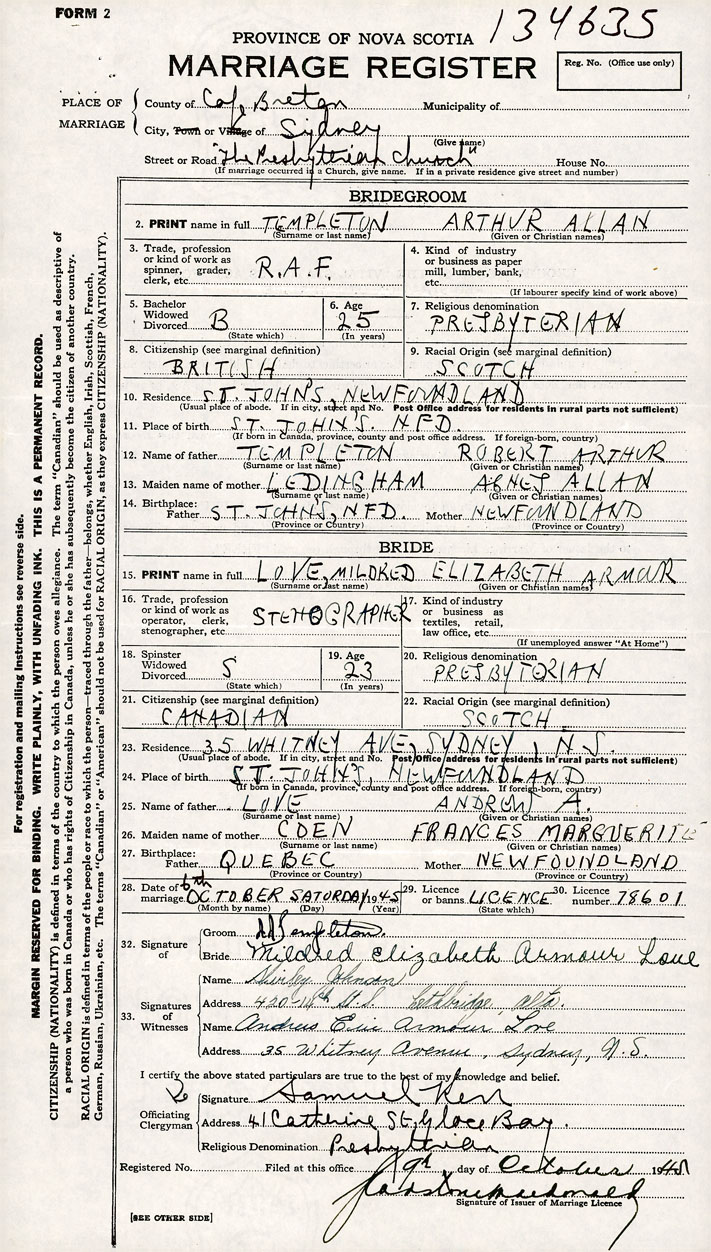 FORM 2
134635
PROVINCE OF NOVA SCOTIA
MARRIAGE REGISTER
Reg. No. (Office use only)
PLACE OF MARRIAGE
County of Cape Breton Municipality of
City, Town or Village of Sydney
(Give name)
Street or Road "The Presbyterian Church" House No.
(If marriage occurred in a Church, give name. If in a private residence give street and number)
BRIDEGROOM
2. PRINT name in full TEMPLETON ARTHUR ALLAN
(Surname or last name) (Given or Christian names)
3. Trade, profession or kind of work as spinner, grader, clerk, etc. R.A.F.
4. Kind of industry or business as paper mill, lumber, bank, etc.
(If labourer specify kind of work above)
5. Bachelor Widowed Divorced B
(State which)
6. Age 25
(In years)
7. Religious denomination
PRESBYTERIAN
8. Citizenship (see marginal definition)
BRITISH
9. Racial Origin (see marginal definition)
SCOTCH
10. Residence ST. JOHN'S, NEWFOUNDLAND
(Usual place of abode. If in city, street and No. Post Office address for residents in rural parts not sufficient)
11. Place of birth ST. JOHN'S. NFD.
(If born in Canada, province, county and post office address. If foreign-born, country)
12. Name of father TEMPLETON ROBERT ARTHUR
(Surname or last name) (Given or Christian names)
13. Maiden name of mother LEDINGHAM AGNES ALLAN
(Surname or last name) (Given or Christian names)
14. Birthplace: Father ST. JOHN'S, NFD. Mother NEWFOUNDLAND
(Province or Country) (Province or Country)
BRIDE
15. PRINT name in full LOVE, MILDRED ELIZABETH ARMOUR
(Surname or last name) (Given or Christian names)
16. Trade, profession or kind of work as operator, clerk, stenographer, etc. STENOGRAPHER
17. Kind of industry or business as textiles, retail, law office, etc.
(If unemployed answer "At Home")
18. Spinster Widowed Divorced S
(State which)
19. Age 23
(In years)
20. Religious denomination
PRESBYTERIAN
21. Citizenship (see marginal definition)
CANADIAN
22. Racial Origin (see marginal definition)
SCOTCH
23. Residence 35 WHITNEY AVE, SYDNEY, N.S.
(Usual place of abode. If in city, street and No. Post Office address for residents in rural parts not sufficient)
24. Place of birth ST. JOHN'S, NEWFOUNDLAND
(If born in Canada, province, county and post office address. If foreign-born, country)
25. Name of father LOVE ANDREW A.
(Surname or last name) (Given or Christian names)
26. Maiden name of mother CDEN FRANCES MARGUERITE
(Surname or last name) (Given or Christian names)
27. Birthplace: Father QUEBEC Mother NEWFOUNDLAND
(Province or Country) (Province or Country)
28. Date of marriage 6th OCTOBER SATURDAY 1945
(Month by name) (Day) (Year)
29. Licence or banns LICENCE
(State which)
30. Licence number 78601
32. Signature of
Groom Templeton
Bride Mildred Elizabeth Armour Love
33. Signatures of Witnesses
Name Shirley Johnson
Address 420 St. S. Lethbridge, Alta.
Name Andrew Eric Armour Love
Address 35 Whitney Avenue, Sydney, N.S.
I certify the above stated particulars are true to the best of my knowledge and belief.
Officiating Clergyman
Signature Samuel Kerr
Address 41 Catherine St, Glace Bay.
Religious Denomination Presbyterian
Registered No. Filed at this office 9th day of October 1945
Macdonald
Signature of Issuer of Marriage Licence
[SEE OTHER SIDE]
For registration and mailing instructions see reverse side.
MARGIN RESERVED FOR BINDING. WRITE PLAINLY, WITH UNFADING INK. THIS IS A PERMANENT RECORD.
CITIZENSHIP (NATIONALITY) is defined in terms of the country to which the person owes allegiance. The term "Canadian" should be used as descriptive of
a person who was born in Canada or who has rights of Citizenship in Canada, unless he or she has subsequently become the citizen of another country.
RACIAL ORIGIN is defined in terms of the people or race to which the person—traced through the father—belongs, whether English, Irish, Scottish, French,
German, Russian, Ukrainian, etc. The terms "Canadian" or "American" should not be used for RACIAL ORIGIN, as they express CITIZENSHIP (NATIONALITY).